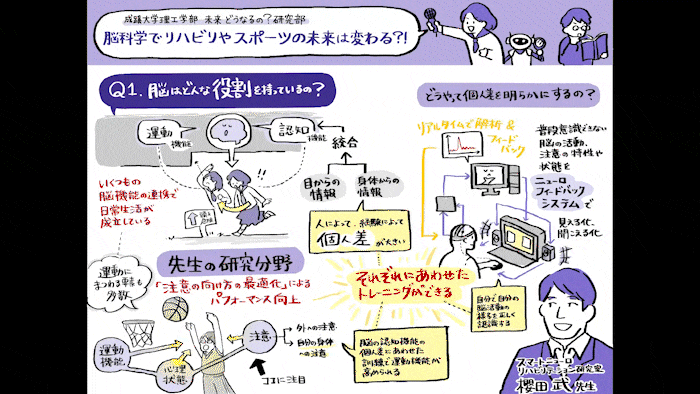 成蹊大学理工学部 未来どうなるの?研究部
脳科学でリハビリやスポーツの未来は変わる?!
Q1. 脳はどんな役割を持っているの?
運動
機能
認知
機能
統合
目からの
情報
身体からの
情報
いくつもの
脳機能の連携で
日常生活が
成立している
人によって、経験によって
個人差が大きい
先生の研究分野
「注意の向け方の最適化」による
パフォーマンス向上
運動に
まつわる
も
多数
運動
機能
心理
状態
注意
外への注意
自分の身体
への注意
ココに注目
脳の認知機能の
個人差にあわせた
訓練で運動機能が
高められる
どうやって個人差を明らかにするの?
リアルタイムで解析&
フィード
バック
普段意識できない
脳の活動、
注意の特性や
状態を
ニューロ
フィードバック
システムで
見える化、
聞こえる化
それぞれにあわせた
トレーニングができる
自分で自分の
脳活動の
様子を正しく
認識する
スマートニューロ
リハビリテーション研究室
櫻田 武 先生